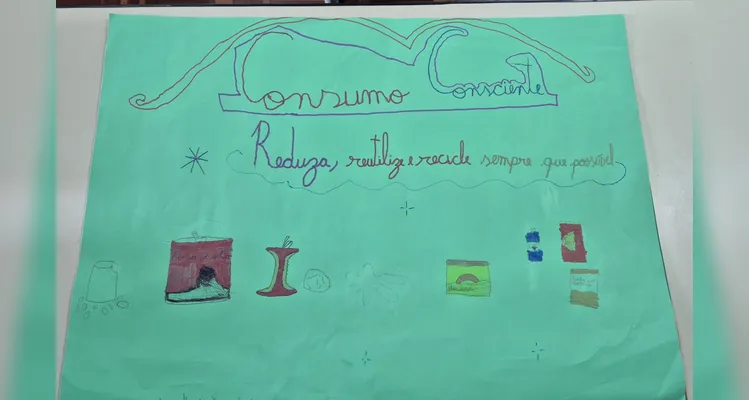 Consumo Consciente
Reduza, reutilize e recicle sempre que possível